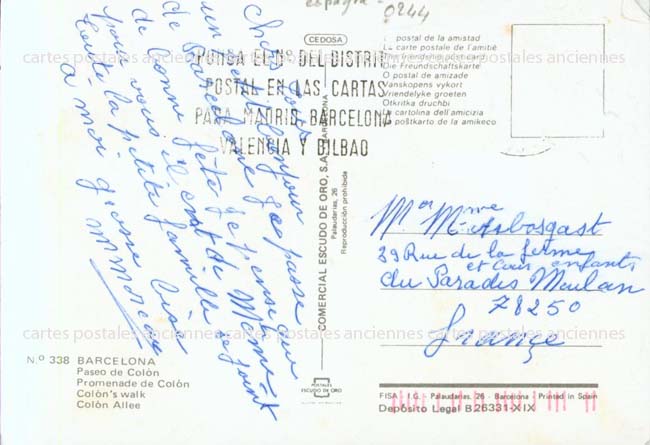 espagna - 0244
CEDOSA
PONGA EL Nº DEL DISTRITO
POSTAL EN LAS CARTAS
PARA MADRID, BARCELONA
VALENCIA Y BILBAO
postal de la amistad
La carte postale de l'amitié
The friendship postcard
Die Freundschaftskarte
O postal de amizade
Vanskopens vykort
Vriendelyke groeten
Otkritka druchbi
La cartolina dell'amicizia
La poŝtkarto de la amikeco
Chers tous
un petit bonjour
de Barcelone je passe
de bonne fête je pense que
pour vous il en est de Même
toute la petite famille se joint
à moi grosse bise
M moreau
COMERCIAL ESCUDO DE ORO, S.A. BARCELONA
Palaudarias, 26
Reproducción prohibida
Mr Mme Arbosgast
29 Rue de la ferme
et leurs enfants
du Paradis Meulan
78250
France
N.º 338 BARCELONA
Paseo de Colón
Promenade de Colón
Colón's walk
Colón Allee
POSTALES
ESCUDO DE ORO
FISA - I.G. - Palaudarias, 26 - Barcelona - Printed in Spain
Depósito Legal B 26331-XIX
cartes postales anciennes cartes postales anciennes
cartes postales anciennes cartes postales anciennes